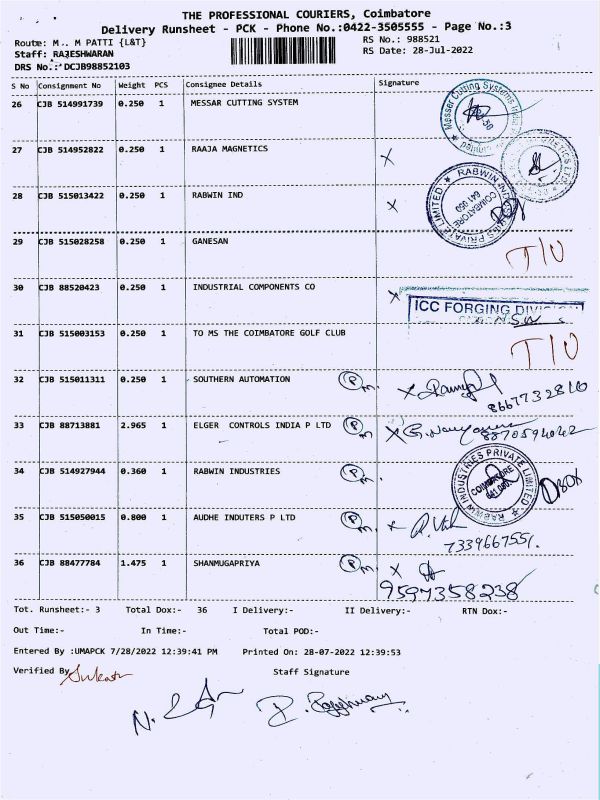 THE PROFESSIONAL COURIERS, Coimbatore
Delivery Runsheet - PCK - Phone No.:0422-3505555 - Page No.:3
Route: M.. M PATTI {L&T}
RS No.: 988521
Staff: RAJESHWARAN
RS Date: 28-Jul-2022
DRS No.: DCJB98852103
S No Consignment No Weight PCS Consignee Details Signature
26 CJB 514991739 0.250 1 MESSAR CUTTING SYSTEM
Messer Cutting Systems
27 CJB 514952822 0.250 1 RAAJA MAGNETICS X
28 CJB 515013422 0.250 1 RABWIN IND X
RABWIN INDUSTRIES PRIVATE LIMITED
COIMBATORE
641 050
29 CJB 515028258 0.250 1 GANESAN T/U
30 CJB 88520423 0.250 1 INDUSTRIAL COMPONENTS CO X
ICC FORGING DIVISION
31 CJB 515003153 0.250 1 TO MS THE COIMBATORE GOLF CLUB T/U
32 CJB 515011311 0.250 1 SOUTHERN AUTOMATION P X
8667732810
33 CJB 88713881 2.965 1 ELGER CONTROLS INDIA P LTD P X
8870594042
34 CJB 514927944 0.360 1 RABWIN INDUSTRIES P
RABWIN INDUSTRIES PRIVATE LIMITED
COIMBATORE
641 050
35 CJB 515050015 0.800 1 AUDHE INDUTERS P LTD P X
7339667551.
36 CJB 88477784 1.475 1 SHANMUGAPRIYA P X
9597358238
Tot. Runsheet:- 3 Total Dox:- 36 I Delivery:- II Delivery:- RTN Dox:-
Out Time:- In Time:- Total POD:-
Entered By :UMAPCK 7/28/2022 12:39:41 PM Printed On: 28-07-2022 12:39:53
Verified By
Staff Signature